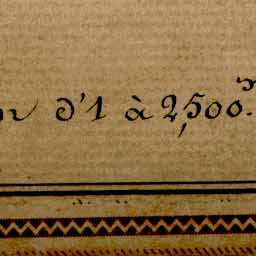 d'1 à 2,500.